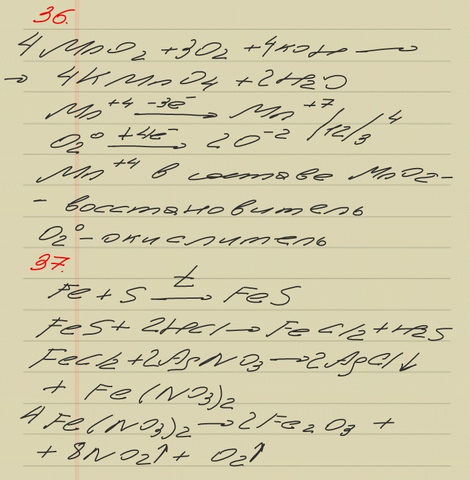 36.
4MnO₂ + 3O₂ + 4KOH →
→ 4KMnO₄ + 2H₂O
Mn⁺⁴ -3e⁻→ Mn⁺⁷ /12/ 4
O₂⁰ +4e⁻→ 2O⁻² 3
Mn⁺⁴ в составе MnO₂ -
- восстановитель
O₂⁰ - окислитель
37.
Fe + S t→ FeS
FeS + 2HCl → FeCl₂ + H₂S
FeCl₂ + 2AgNO₃ → 2AgCl↓
+ Fe(NO₃)₂
4Fe(NO₃)₂ → 2Fe₂O₃ +
+ 8NO₂↑ + O₂↑